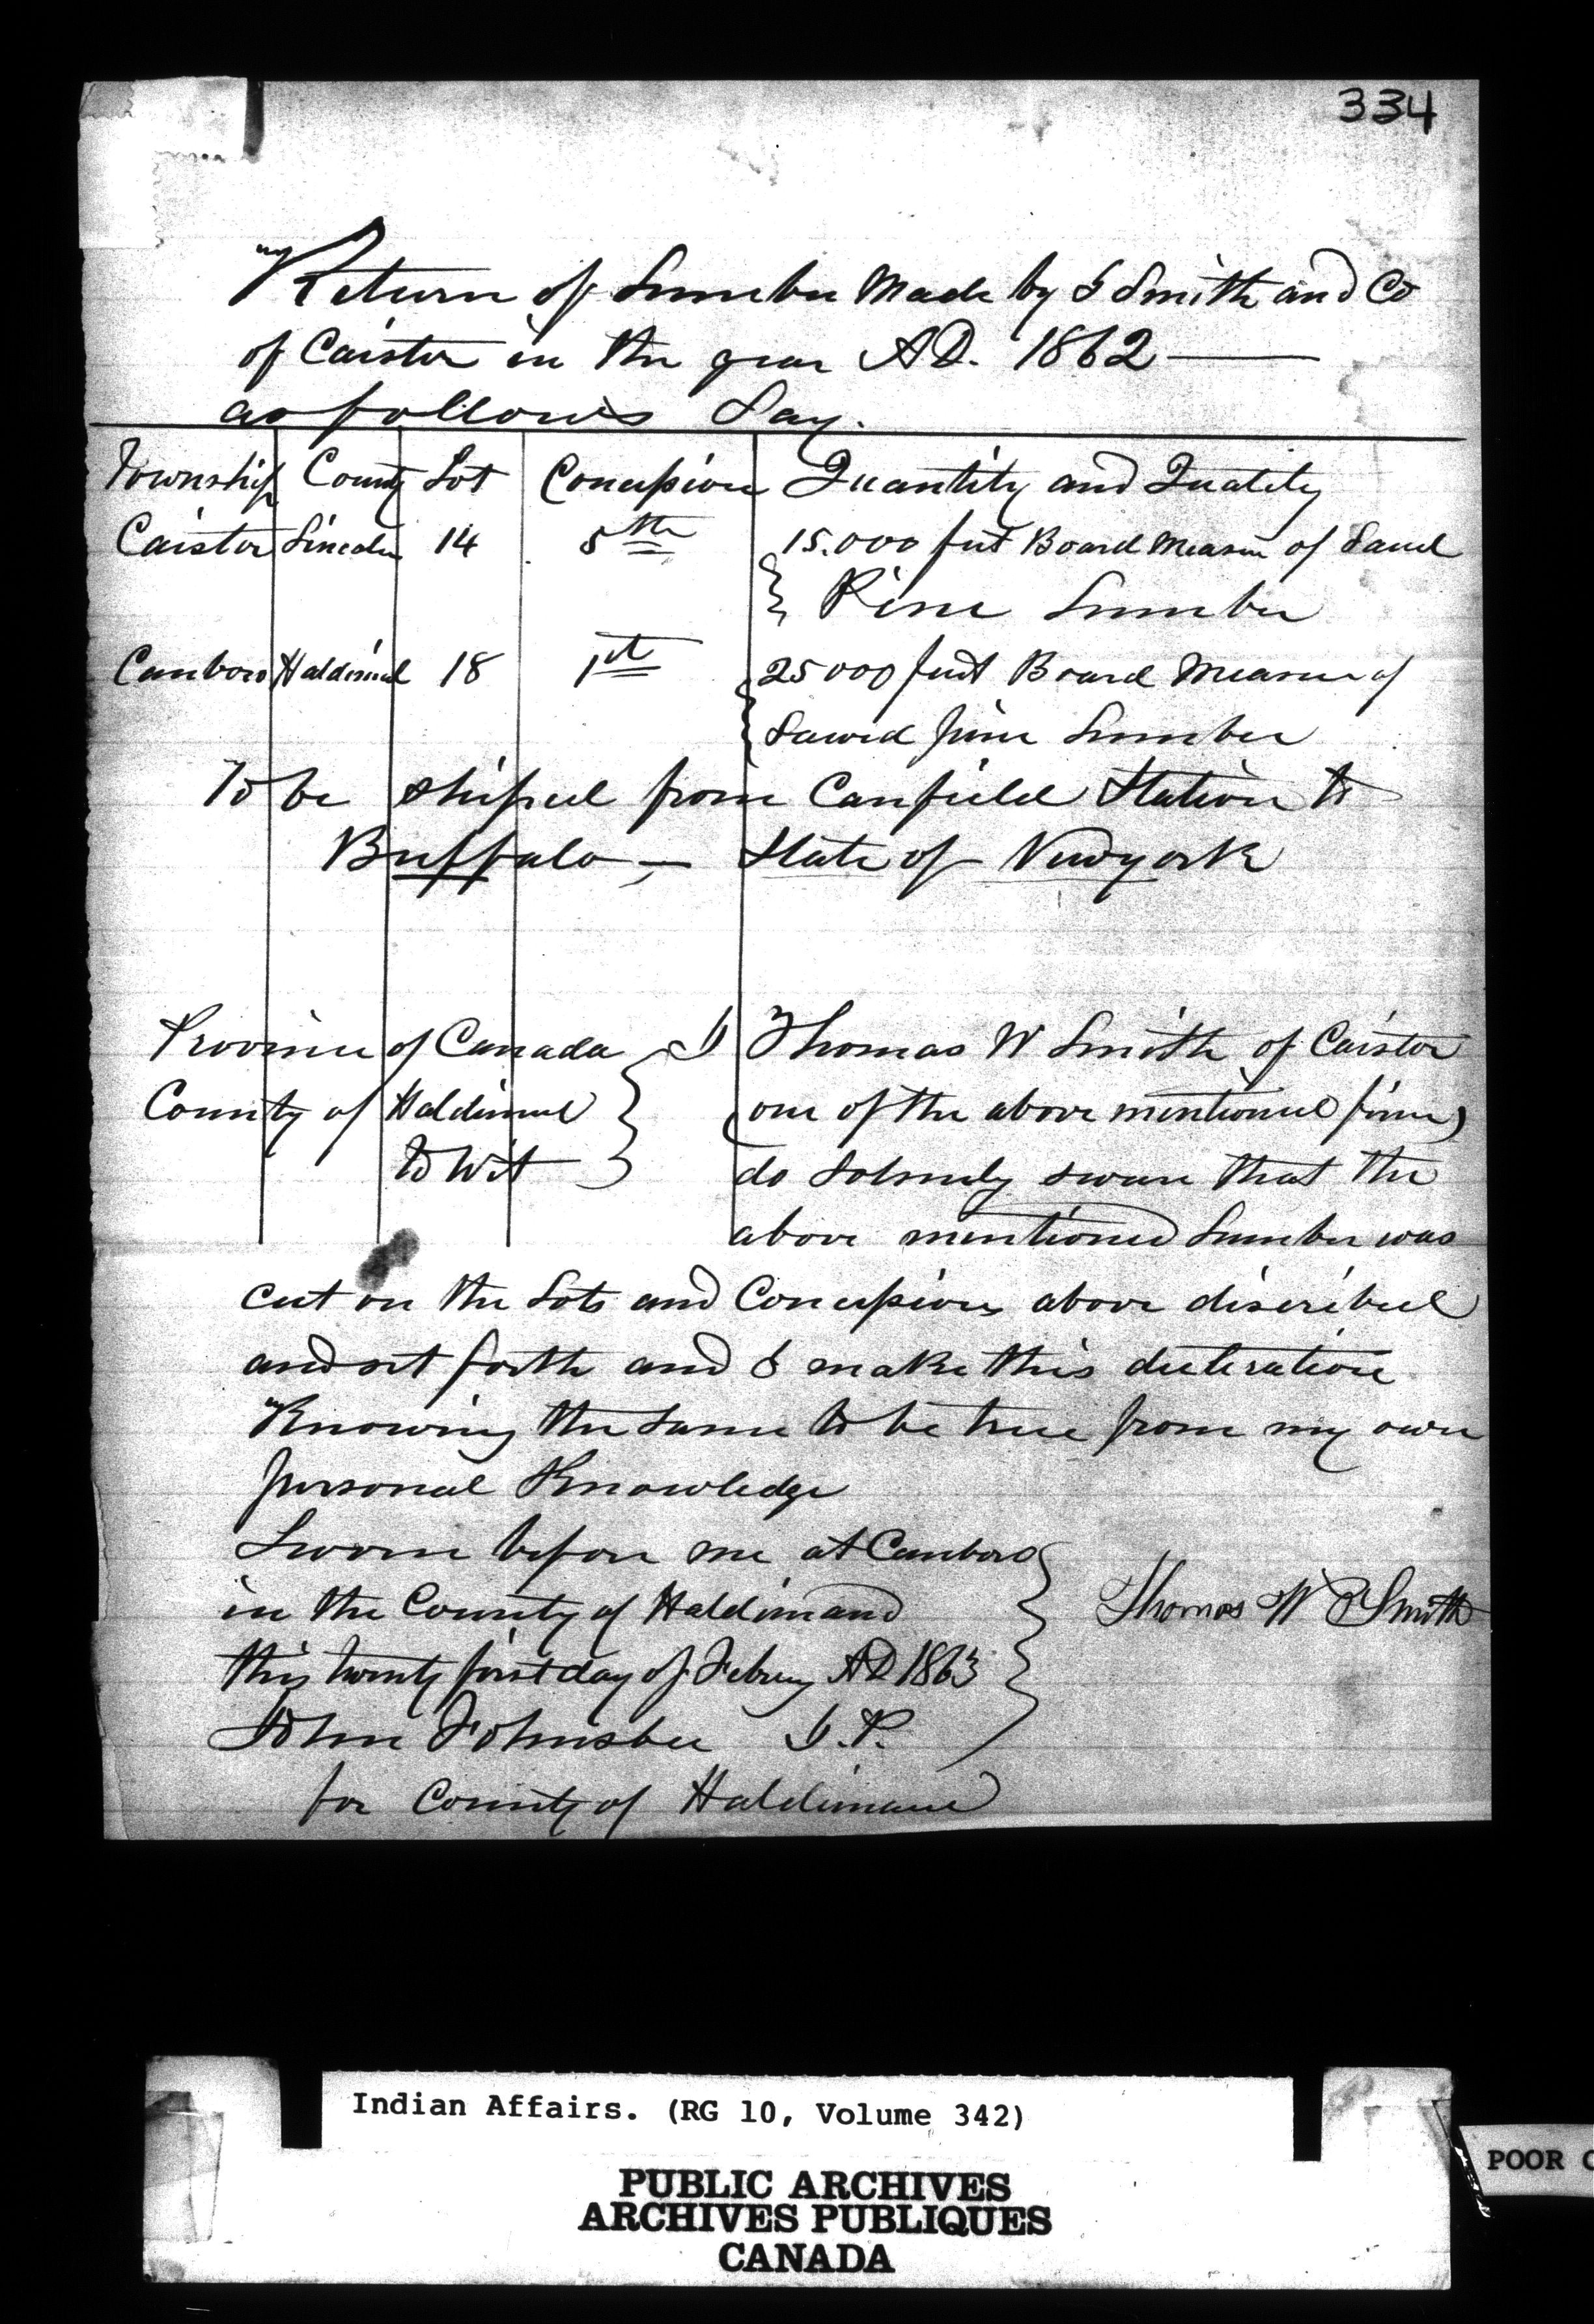 334
Return of Lumber Made by S Smith and Co
of Caistor in the year AD. 1862
as follows Say.
Township County Lot Concession Quantity and Quality
Caistor Lincoln 14 5th 15.000 feet Board Measure of Sawd
Pine Lumber
Canboro Haldimand 18 1st 25000 feet Board Measure of
Sawed pine Lumber
To be shiped from Canfield Station to
Buffalo — State of Newyork
Province of Canada I Thomas W Smith of Caistor
County of Haldimand (one of the above mentioned firm)
To Wit do Solemnly sware that the
above mentioned Lumber was
cut on the Lots and Concessions above discribed
and set forth and I make this decleration
Knowing the same to be true from my own
personal Knowledge
Sworn before me at Canboro
in the County of Haldimand Thomas W Smith
this twenty first day of Febuary AD 1863
John Johnston J.P.
for County of Haldimand
Indian Affairs. (RG 10, Volume 342)
PUBLIC ARCHIVES
ARCHIVES PUBLIQUES
CANADA
POOR